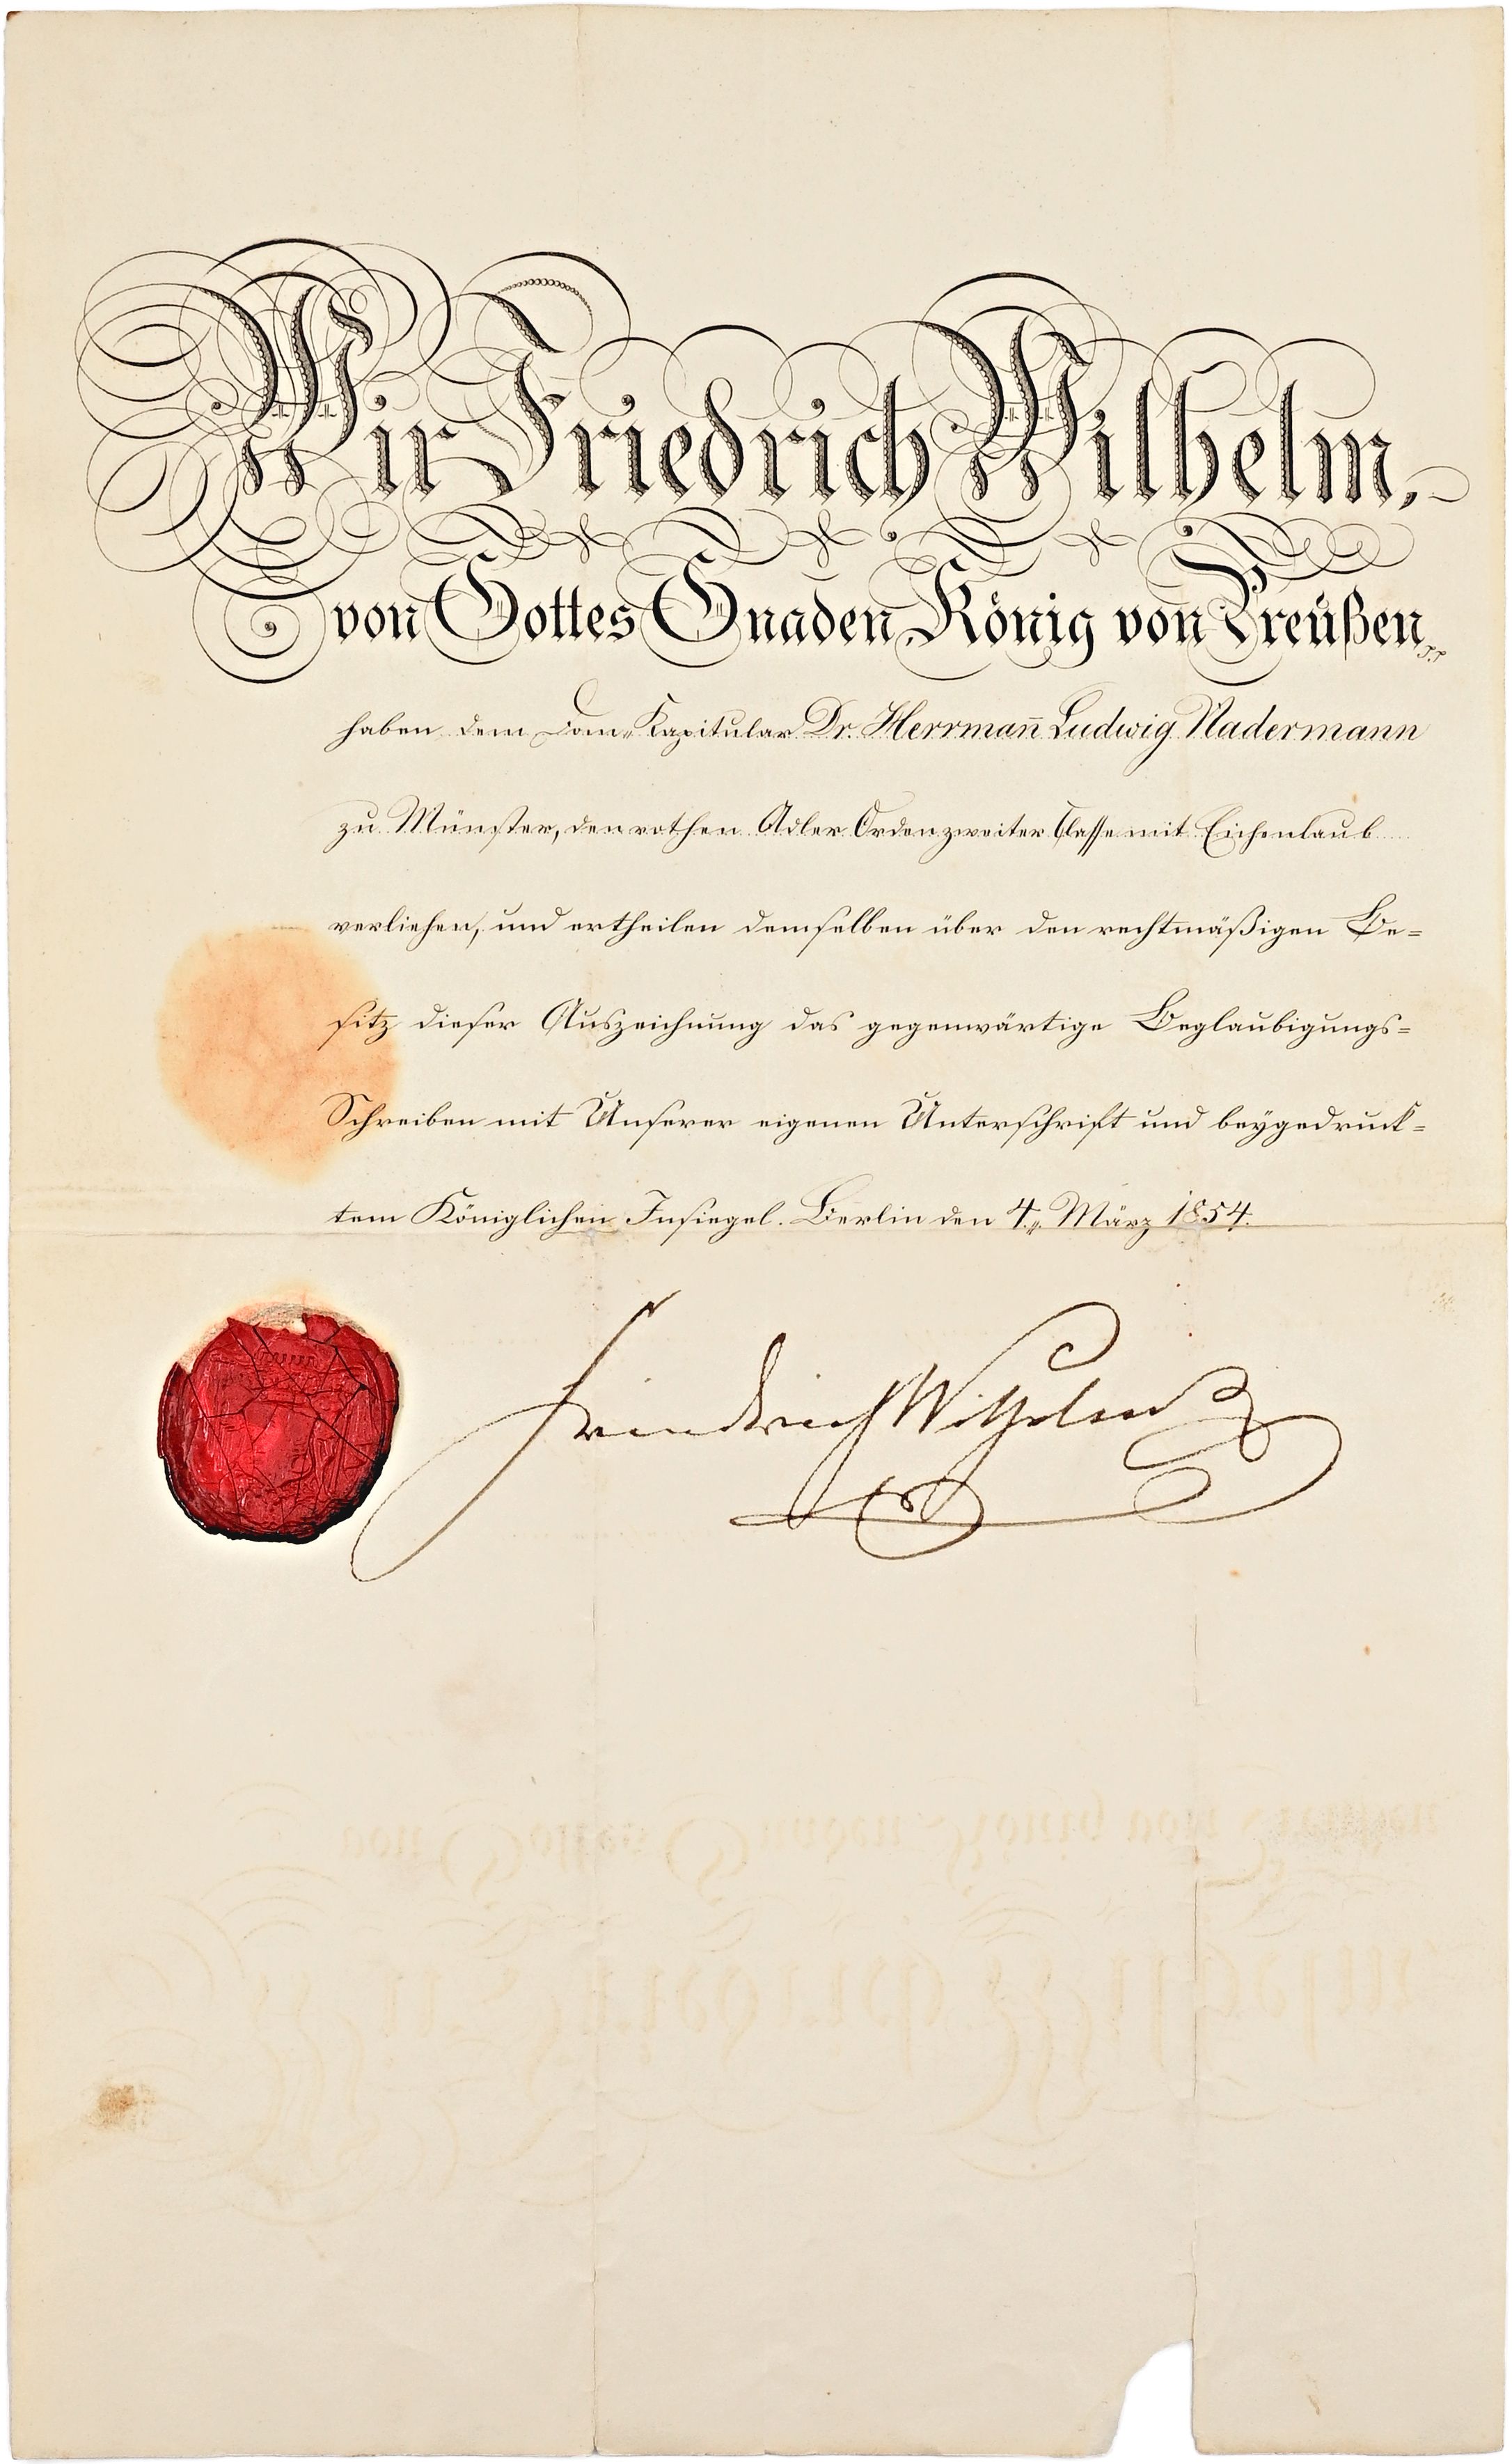 Wir Friedrich Wilhelm,
von Gottes Gnaden König von Preußen
haben dem Dom-Kapitular Dr. Herrman̄ Ludwig Nadermann
zu Münster, den rothen Adler Orden zweiter Classe mit Eichenlaub
verliehen, und ertheilen demselben über den rechtmäßigen Be=
sitz dieser Auszeichnung das gegenwärtige Beglaubigungs=
Schreiben mit Unserer eigenen Unterschrift und beygedruck=
tem Königlichen Insiegel. Berlin den 4. März 1854.
Friedrich Wilhelm